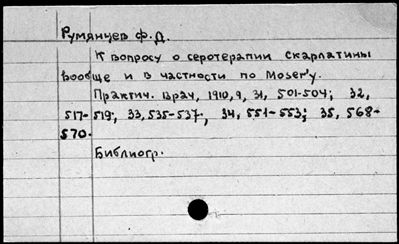 Румянцев Ф.Д.
К вопросу о серотерапии скарлатины
вообще и в частности по Moser'у.
Практич. врач, 1910, 9, 31, 501-504; 32,
517-519; 33, 535-537; 34, 551-553; 35, 568-
570.
Библиогр.